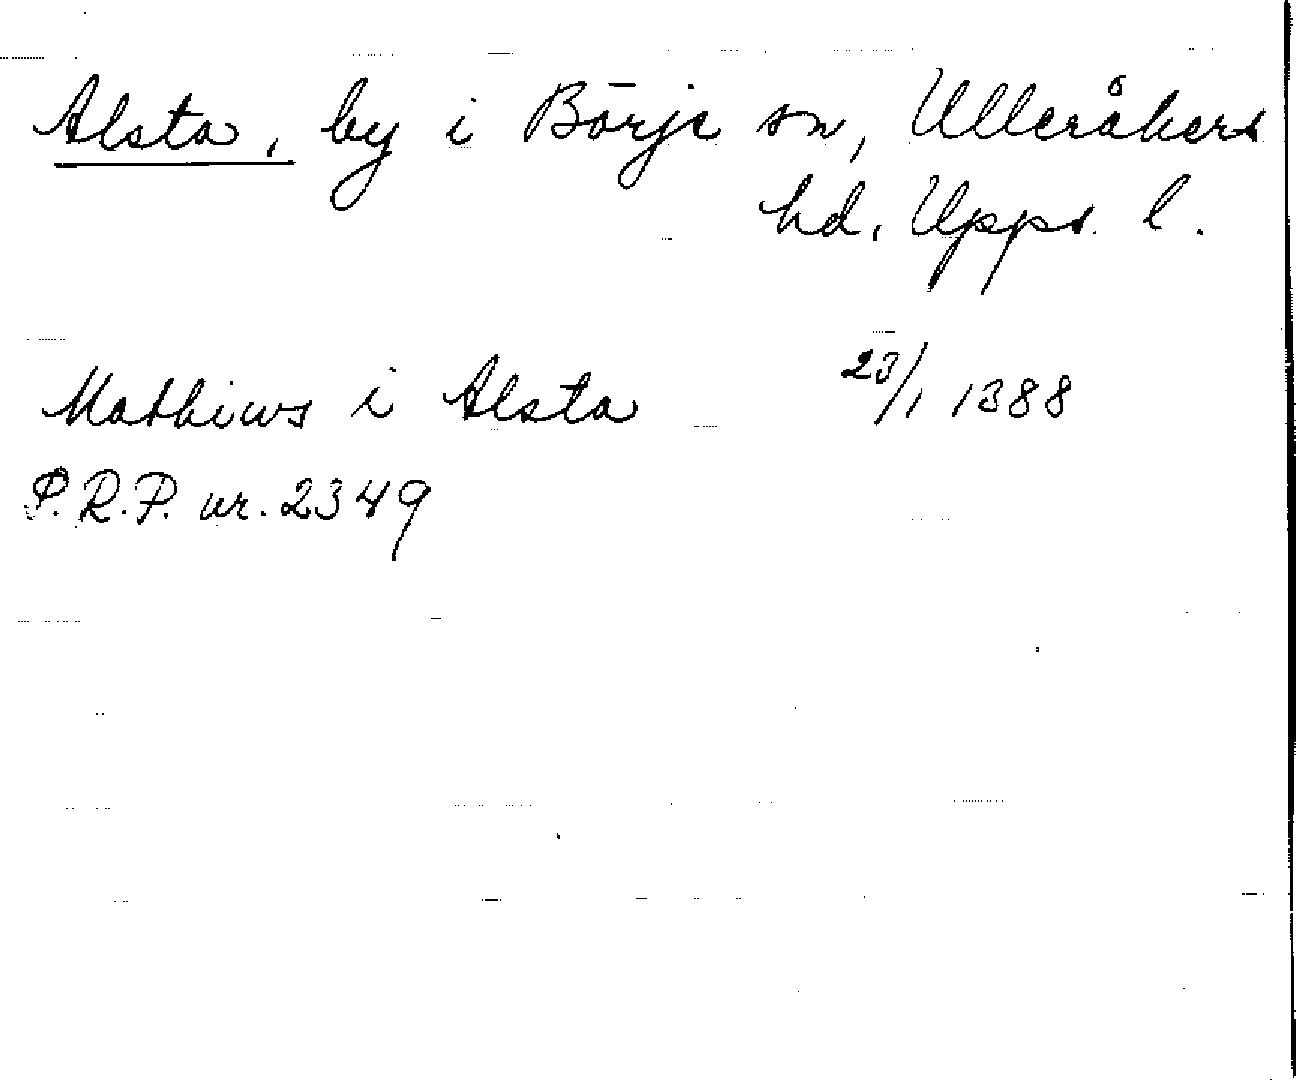 Alsta, by i Börje sn, Ulleråkers
hd, Upps. l.
Mathiws i Alsta 23/1 1388
P.R.P. nr. 2349